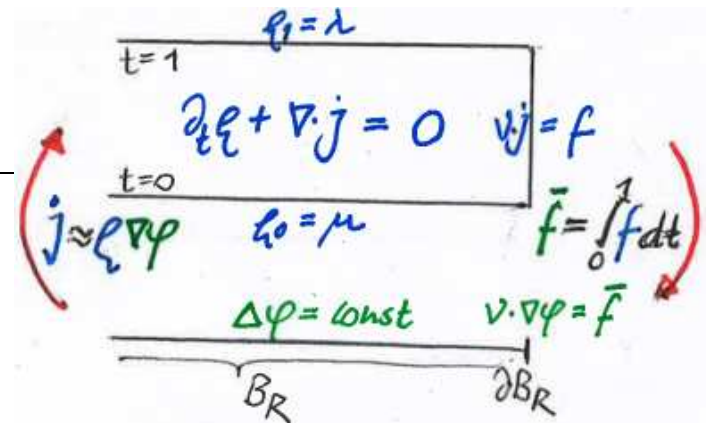 ϱ₁ = λ
t = 1
∂ₜϱ + ∇·j = 0 ν·j = f
t=0
j ≈ ϱ∇φ ϱ₀ = μ f̄ = ∫₀¹ f dt
Δφ = const ν·∇φ = f̄
B_R ∂B_R